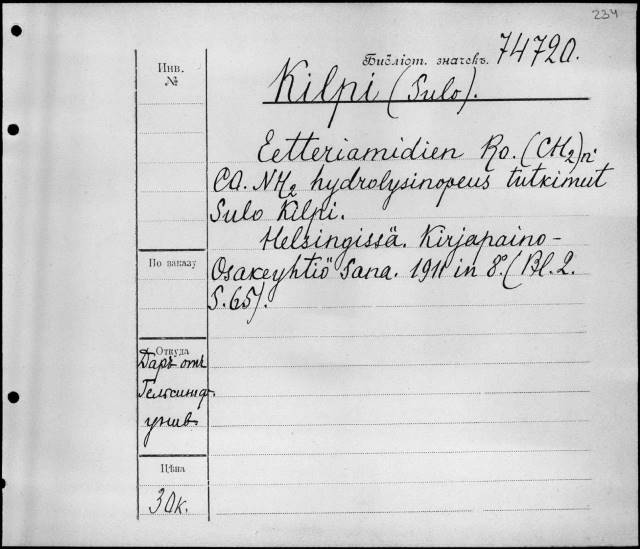 234
Библіот. значекъ. 74720.
Инв.
№
Kilpi (Sulo).
Eetteriamidien Ro.(CH2)n.
CO.NH2 hydrolysinopeus tutkinut
Sulo Kilpi.
Helsingissä. Kirjapaino-
По заказу
Osakeyhtiö Sana. 1911 in 8º. (Bl. 2.
S. 65).
Откуда
Даръ отъ
Гельсингф.
унив.
Цѣна
30к.